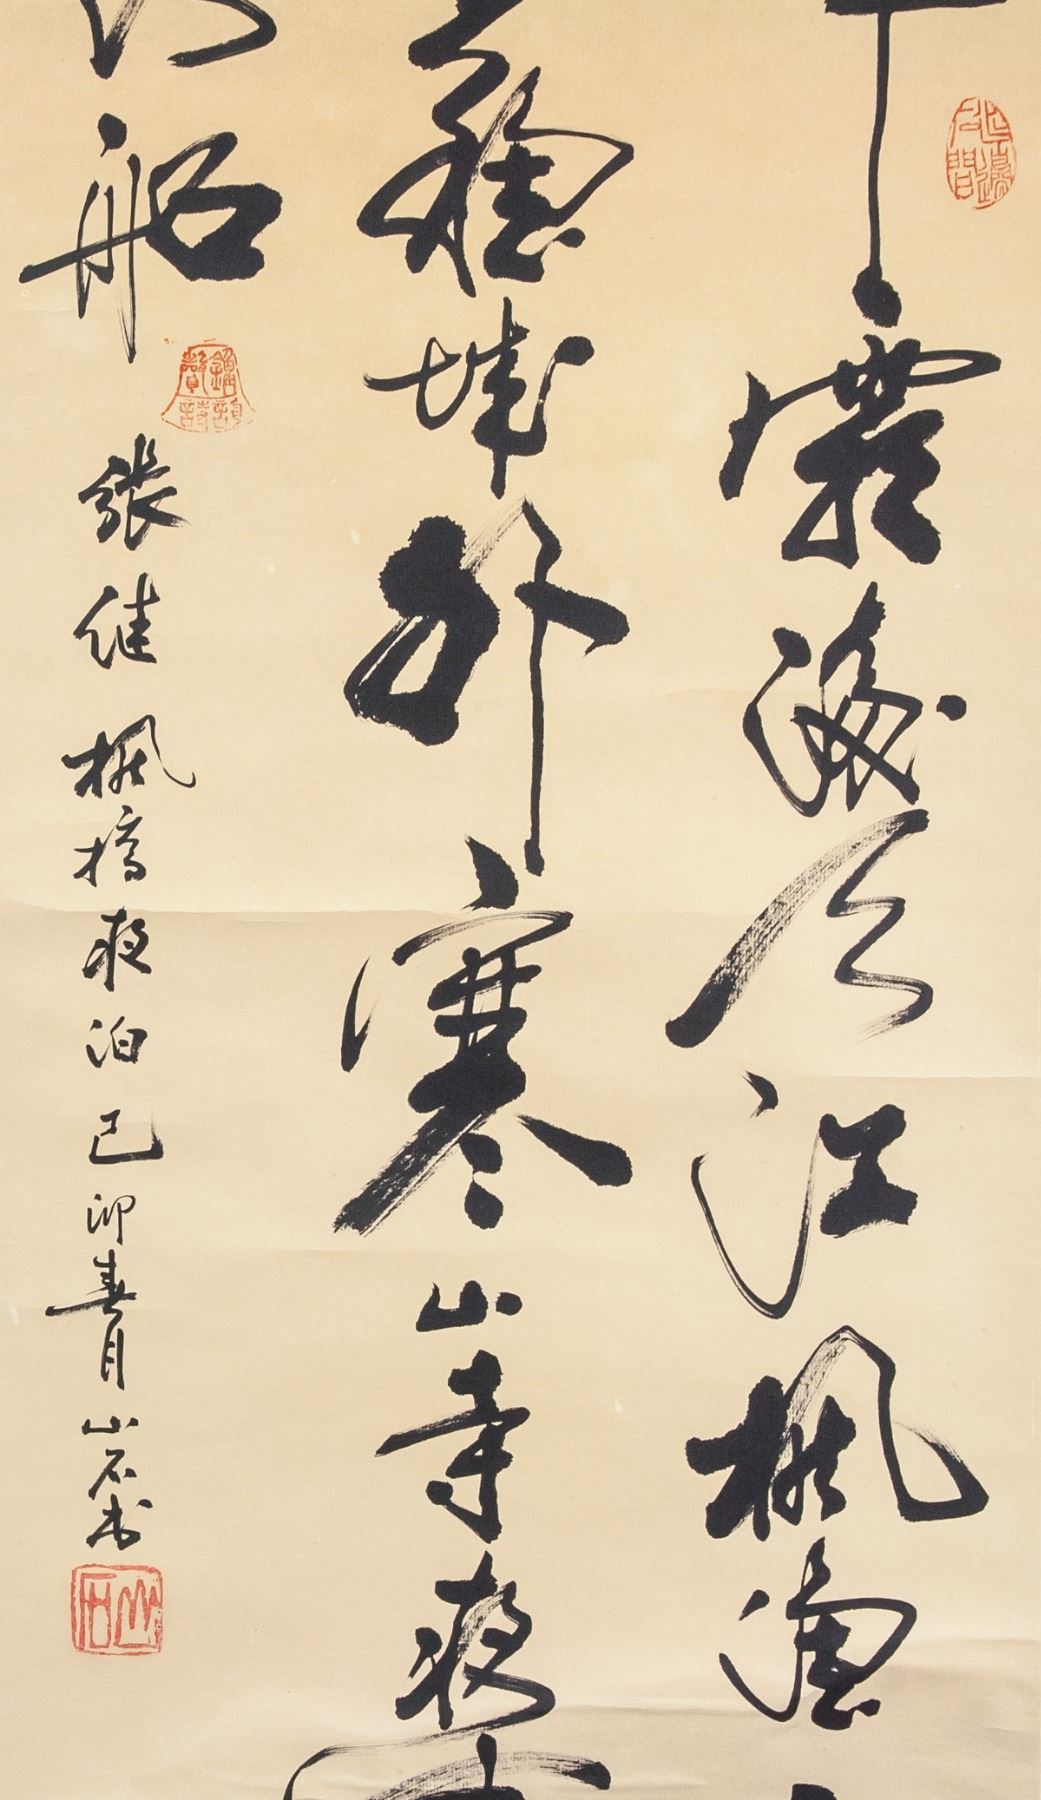 霜滿天江楓漁
蘇城外寒山寺夜
船
張継楓橋夜泊己卯春月山石书
山石